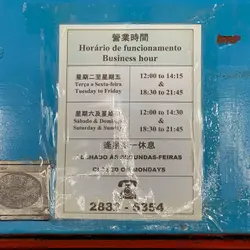 營業時間
Horário de funcionamento
Business hour
星期二至星期五
Terça a Sexta-feira
Tuesday to Friday
12:00 to 14:15
&
18:30 to 21:45
星期六及星期
Sábado &
Saturday &
12:00 to 14:30
&
18:30 to 21:45
逢星期一休息
AS SEGUNDAS-FEIRAS
MONDAYS